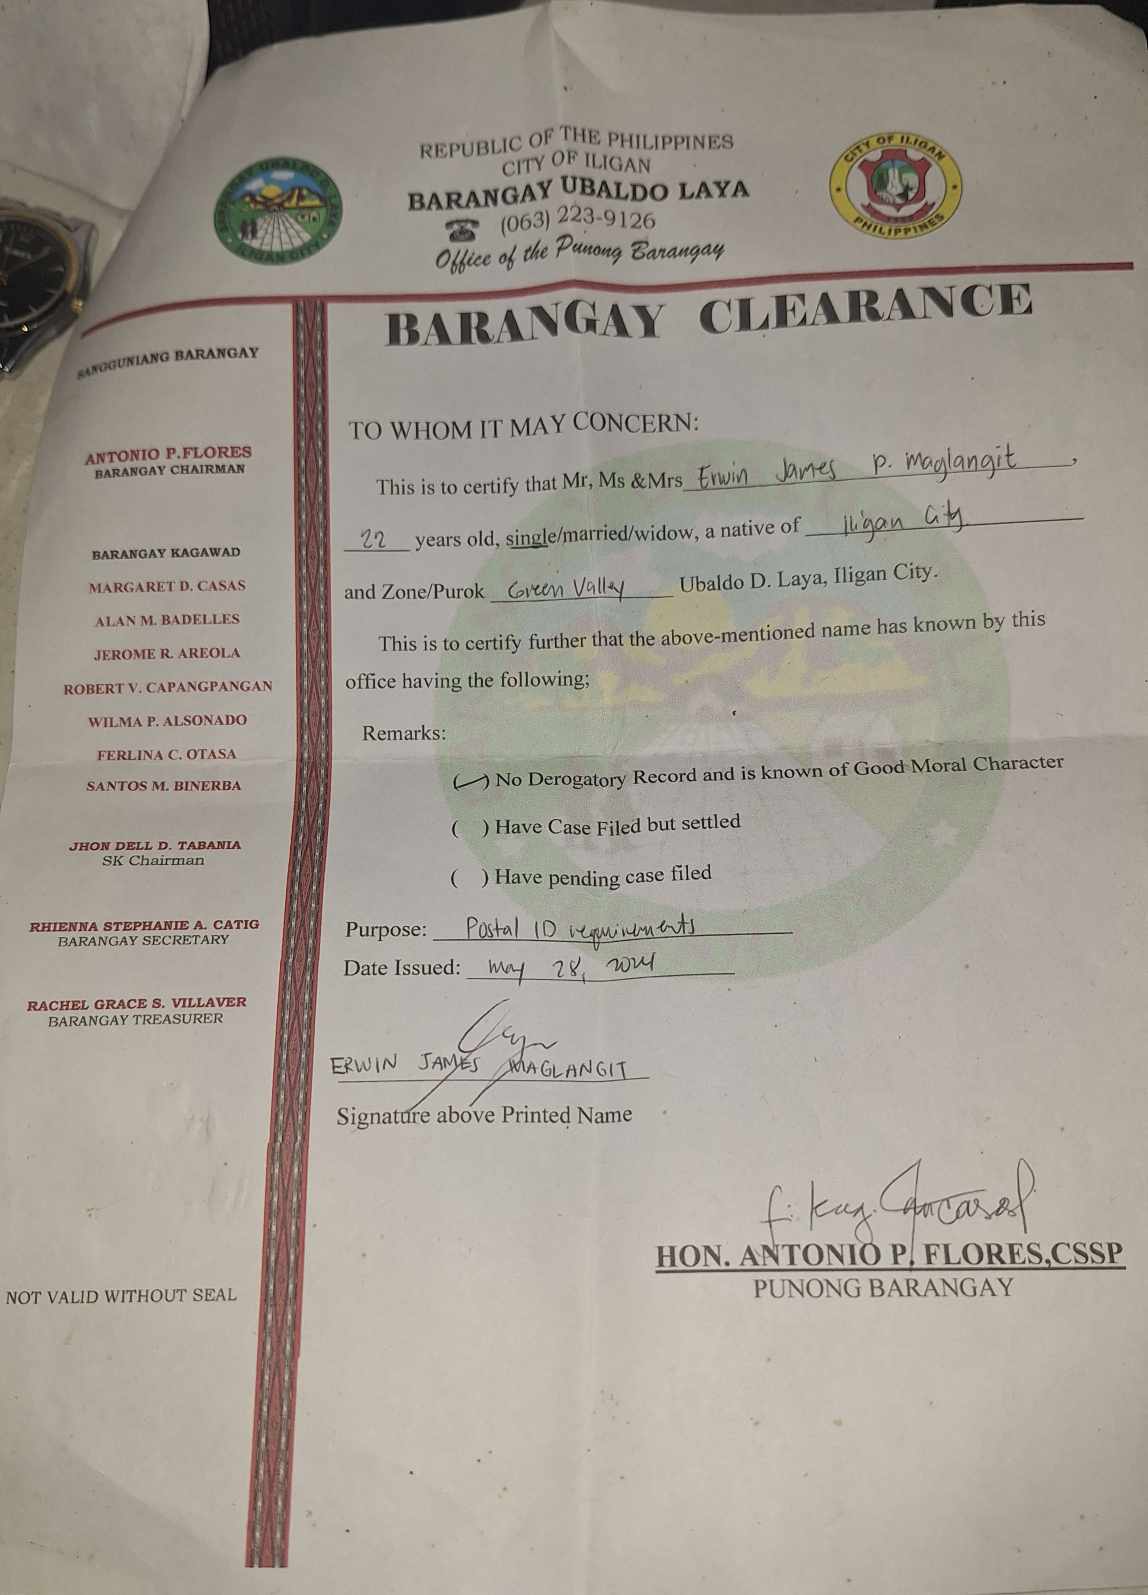 REPUBLIC OF THE PHILIPPINES
CITY OF ILIGAN
BARANGAY UBALDO LAYA
(063) 223-9126
Office of the Punong Barangay
CITY OF ILIGAN
PHILIPPINES
ILIGAN CITY
BARANGAY CLEARANCE
SANGGUNIANG BARANGAY
ANTONIO P.FLORES
BARANGAY CHAIRMAN
BARANGAY KAGAWAD
MARGARET D. CASAS
ALAN M. BADELLES
JEROME R. AREOLA
ROBERT V. CAPANGPANGAN
WILMA P. ALSONADO
FERLINA C. OTASA
SANTOS M. BINERBA
JHON DELL D. TABANIA
SK Chairman
RHIENNA STEPHANIE A. CATIG
BARANGAY SECRETARY
RACHEL GRACE S. VILLAVER
BARANGAY TREASURER
NOT VALID WITHOUT SEAL
TO WHOM IT MAY CONCERN:
This is to certify that Mr, Ms &Mrs Erwin James P. Maglangit,
22 years old, single/married/widow, a native of Iligan City
and Zone/Purok Green Valley Ubaldo D. Laya, Iligan City.
This is to certify further that the above-mentioned name has known by this
office having the following;
Remarks:
(✓) No Derogatory Record and is known of Good Moral Character
( ) Have Case Filed but settled
( ) Have pending case filed
Purpose: Postal ID requirements
Date Issued: May 28, 2024
ERWIN JAMES MAGLANGIT
Signature above Printed Name
HON. ANTONIO P. FLORES,CSSP
PUNONG BARANGAY